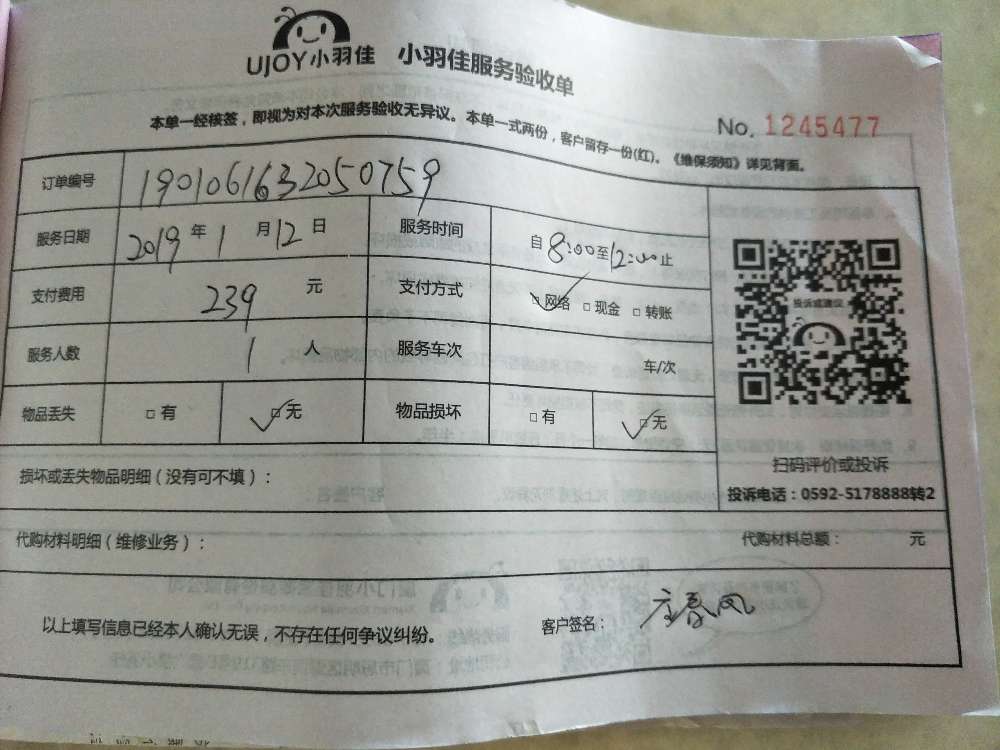 UJOY小羽佳 小羽佳服务验收单
本单一经核签，即视为对本次服务验收无异议。本单一式两份，客户留存一份(红)。《维保须知》详见背面。
No. 1245477
订单编号 1901061632050759
服务日期 2019 年 1 月 12 日 服务时间 自 8:00 至 12:00 止
支付费用 239 元 支付方式 ☑网络 □现金 □转账
服务人数 1 人 服务车次 车/次
物品丢失 □有 ☑无 物品损坏 □有 ☑无
投诉或建议
扫码评价或投诉
投诉电话：0592-5178888转2
损坏或丢失物品明细（没有可不填）：
代购材料明细（维修业务）： 代购材料总额： 元
以上填写信息已经本人确认无误，不存在任何争议纠纷。 客户签名：